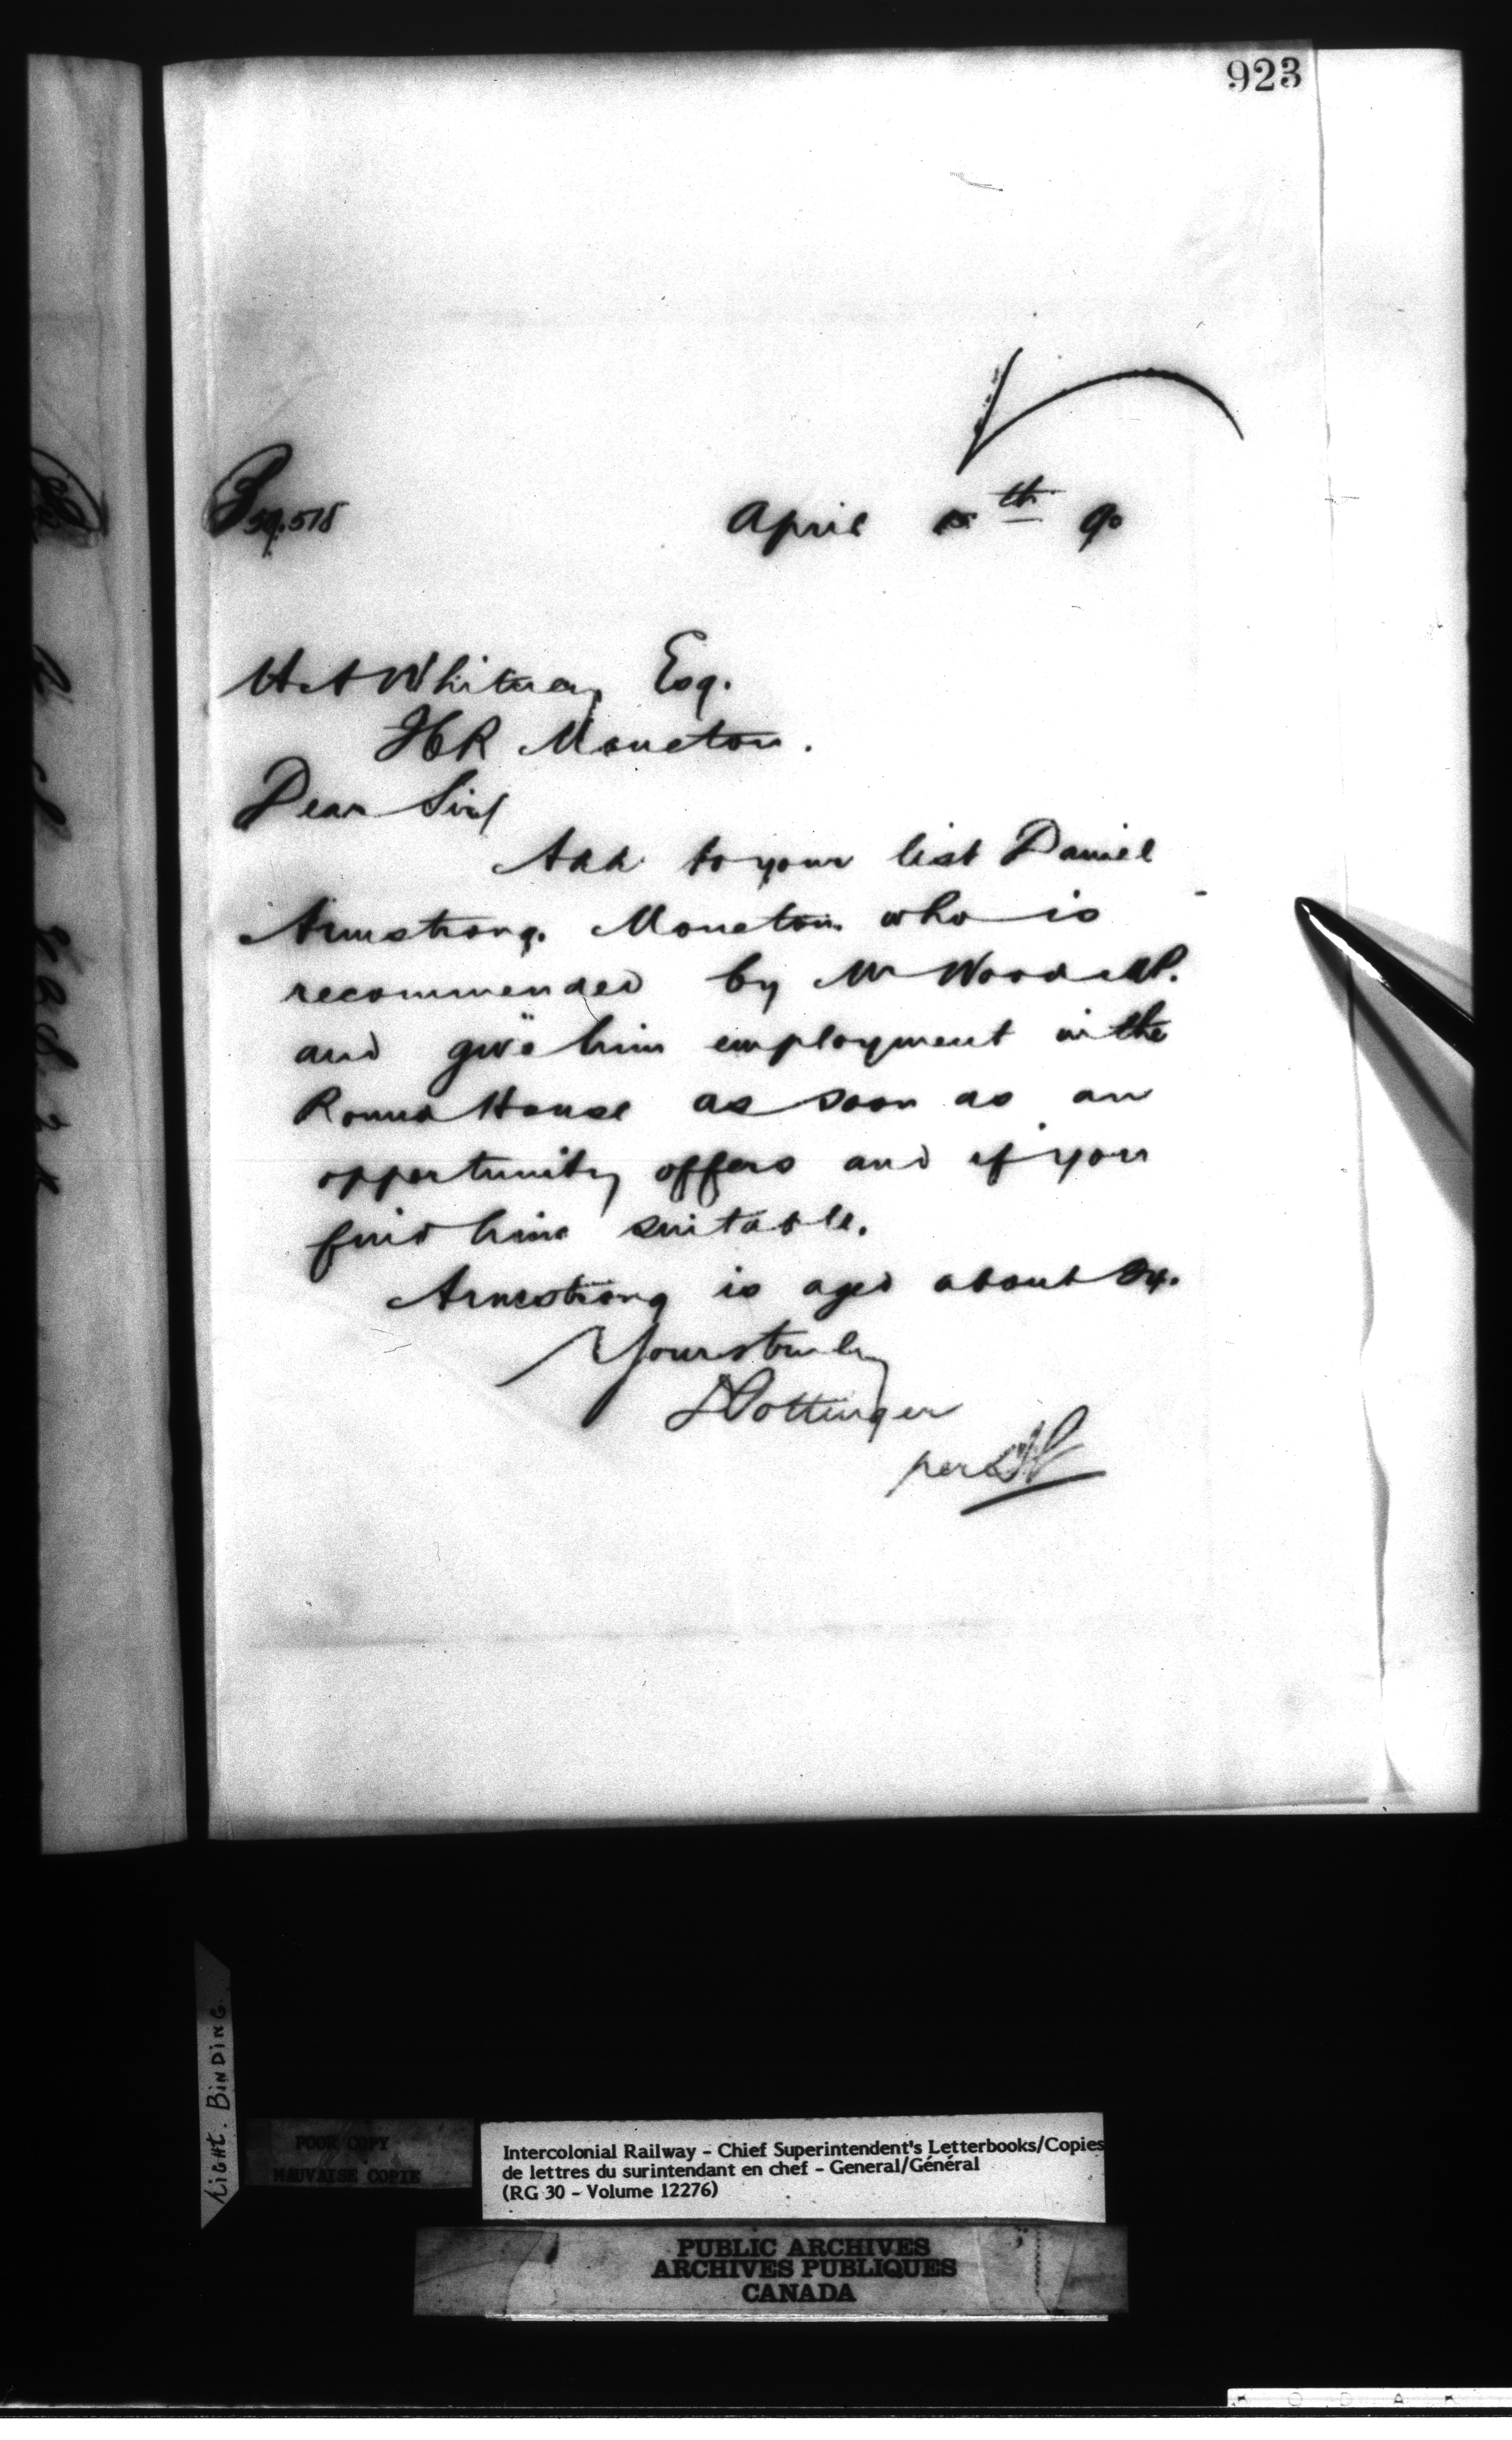 923
59.518
April th 90
H A Whitney Esq.
ICR Moncton.
Dear Sir/
Add to your list Daniel
Armstrong. Moncton who is
recommended by Mr Wood M.P.
and give him employment in the
Round House as soon as an
opportunity offers and if you
find him suitable.
Armstrong is aged about 24.
Yours truly
D Pottinger
per
LIGHT. BINDING
POOR COPY
MAUVAISE COPIE
Intercolonial Railway - Chief Superintendent's Letterbooks/Copies
de lettres du surintendant en chef - General/Général
(RG 30 - Volume 12276)
PUBLIC ARCHIVES
ARCHIVES PUBLIQUES
CANADA
K O D A K